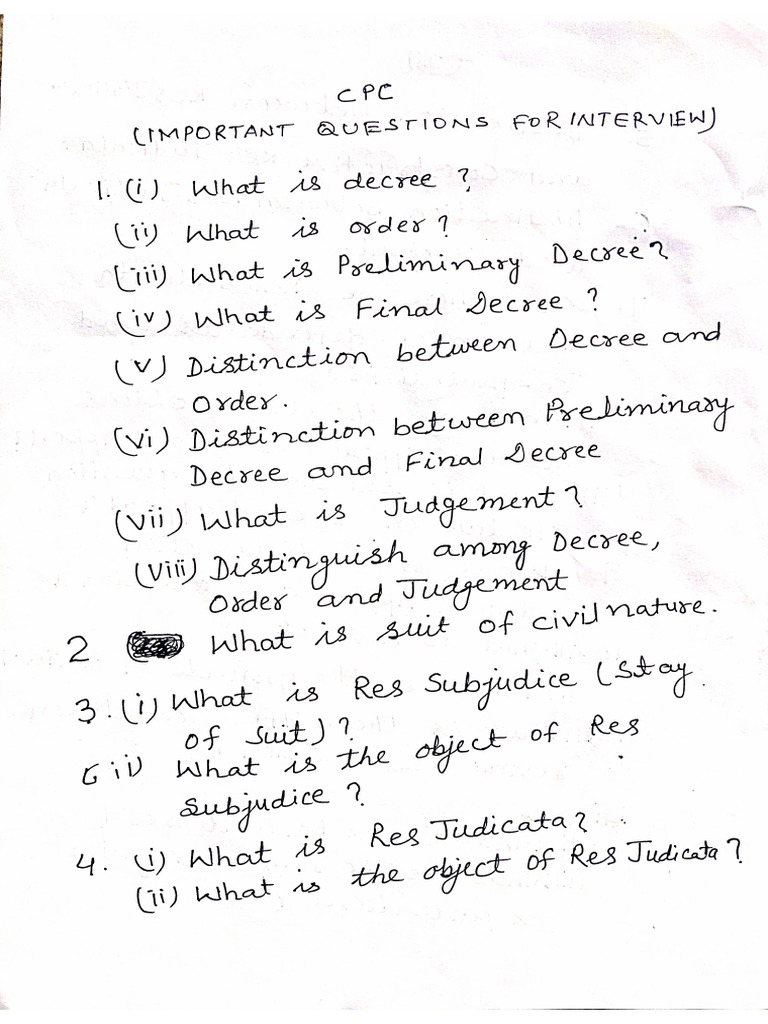 CPC
(IMPORTANT QUESTIONS FOR INTERVIEW)
1. (i) What is decree?
(ii) What is order?
(iii) What is Preliminary Decree?
(iv) What is Final Decree?
(v) Distinction between Decree and
Order.
(vi) Distinction between Preliminary
Decree and Final Decree
(vii) What is Judgement?
(viii) Distinguish among Decree,
Order and Judgement
2 What is suit of civil nature.
3. (i) What is Res Subjudice (Stay
of Suit)?
(ii) What is the object of Res
Subjudice?
4. (i) What is Res Judicata?
(ii) What is the object of Res Judicata?